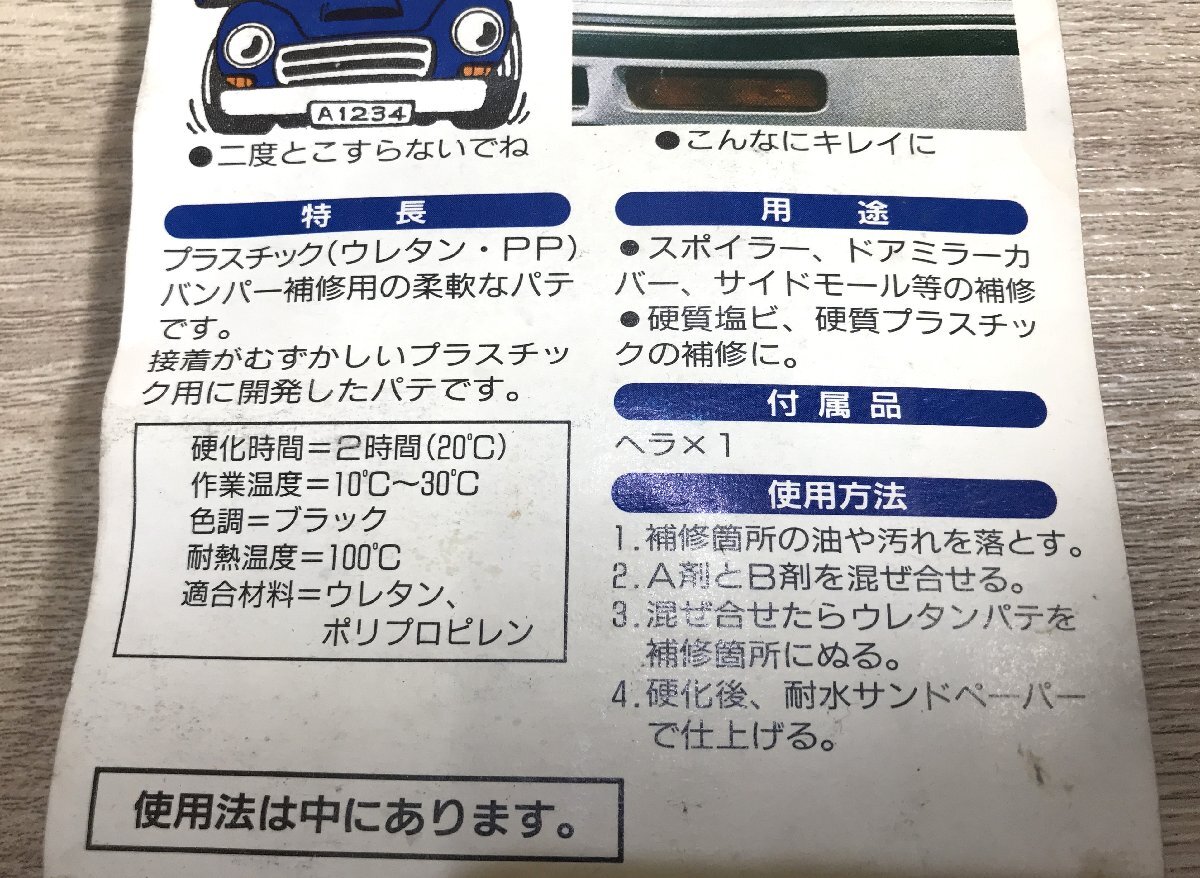 A1234
●二度とこすらないでね
●こんなにキレイに
特長
プラスチック(ウレタン・PP)
バンパー補修用の柔軟なパテ
です。
接着がむずかしいプラスチッ
ク用に開発したパテです。
硬化時間=2時間(20℃)
作業温度=10℃〜30℃
色調=ブラック
耐熱温度=100℃
適合材料=ウレタン、
ポリプロピレン
用途
●スポイラー、ドアミラーカ
バー、サイドモール等の補修
●硬質塩ビ、硬質プラスチッ
クの補修に。
付属品
ヘラ×1
使用方法
1.補修箇所の油や汚れを落とす。
2.A剤とB剤を混ぜ合せる。
3.混ぜ合せたらウレタンパテを
補修箇所にぬる。
4.硬化後、耐水サンドペーパー
で仕上げる。
使用法は中にあります。